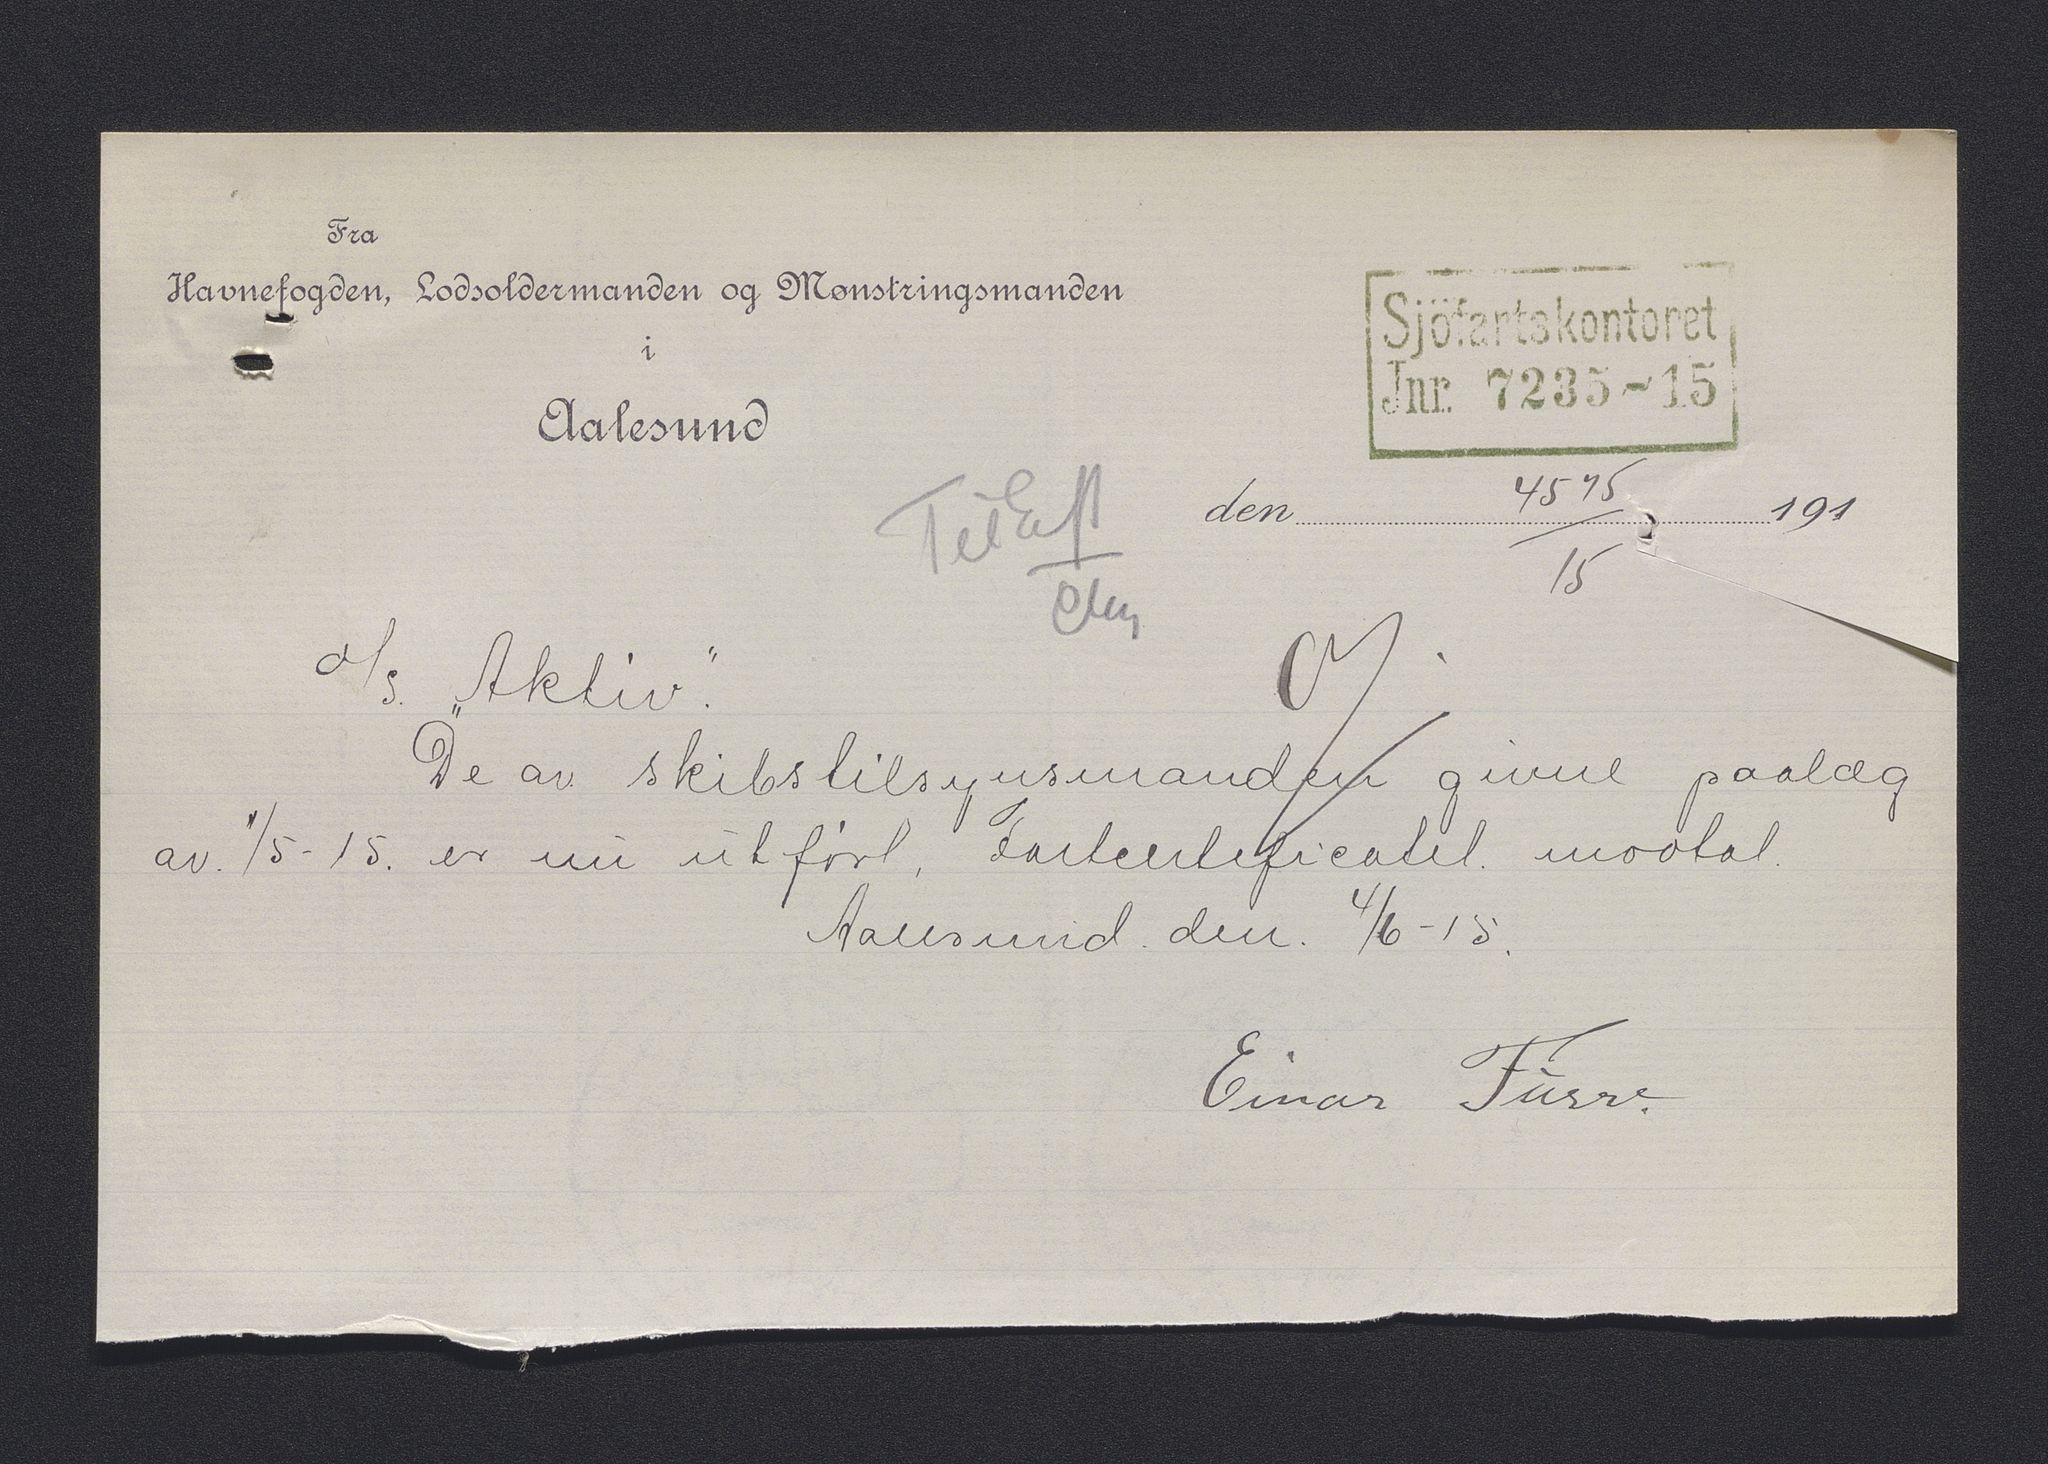 Fra
Havnefogden, Lodsoldermanden og Mønstringsmanden
i
Aalesund
Sjöfartskontoret
Jnr. 7235-15
den 191
4575
15
d/s. „Aktiv".
De av skibstilsynsmanden givne paalæg
av. 1/5-15. er nu utført, Fartcertificatet. mootat.
Aalesund. den. 4/6-15.
Einar Furre.